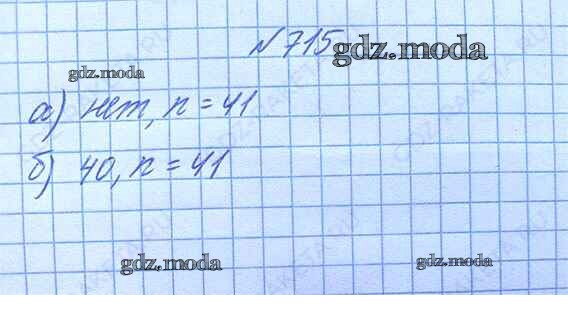 № 715
gdz.moda
gdz.moda
а) нет, n = 41
б) 40, n = 41
gdz.moda
gdz.moda